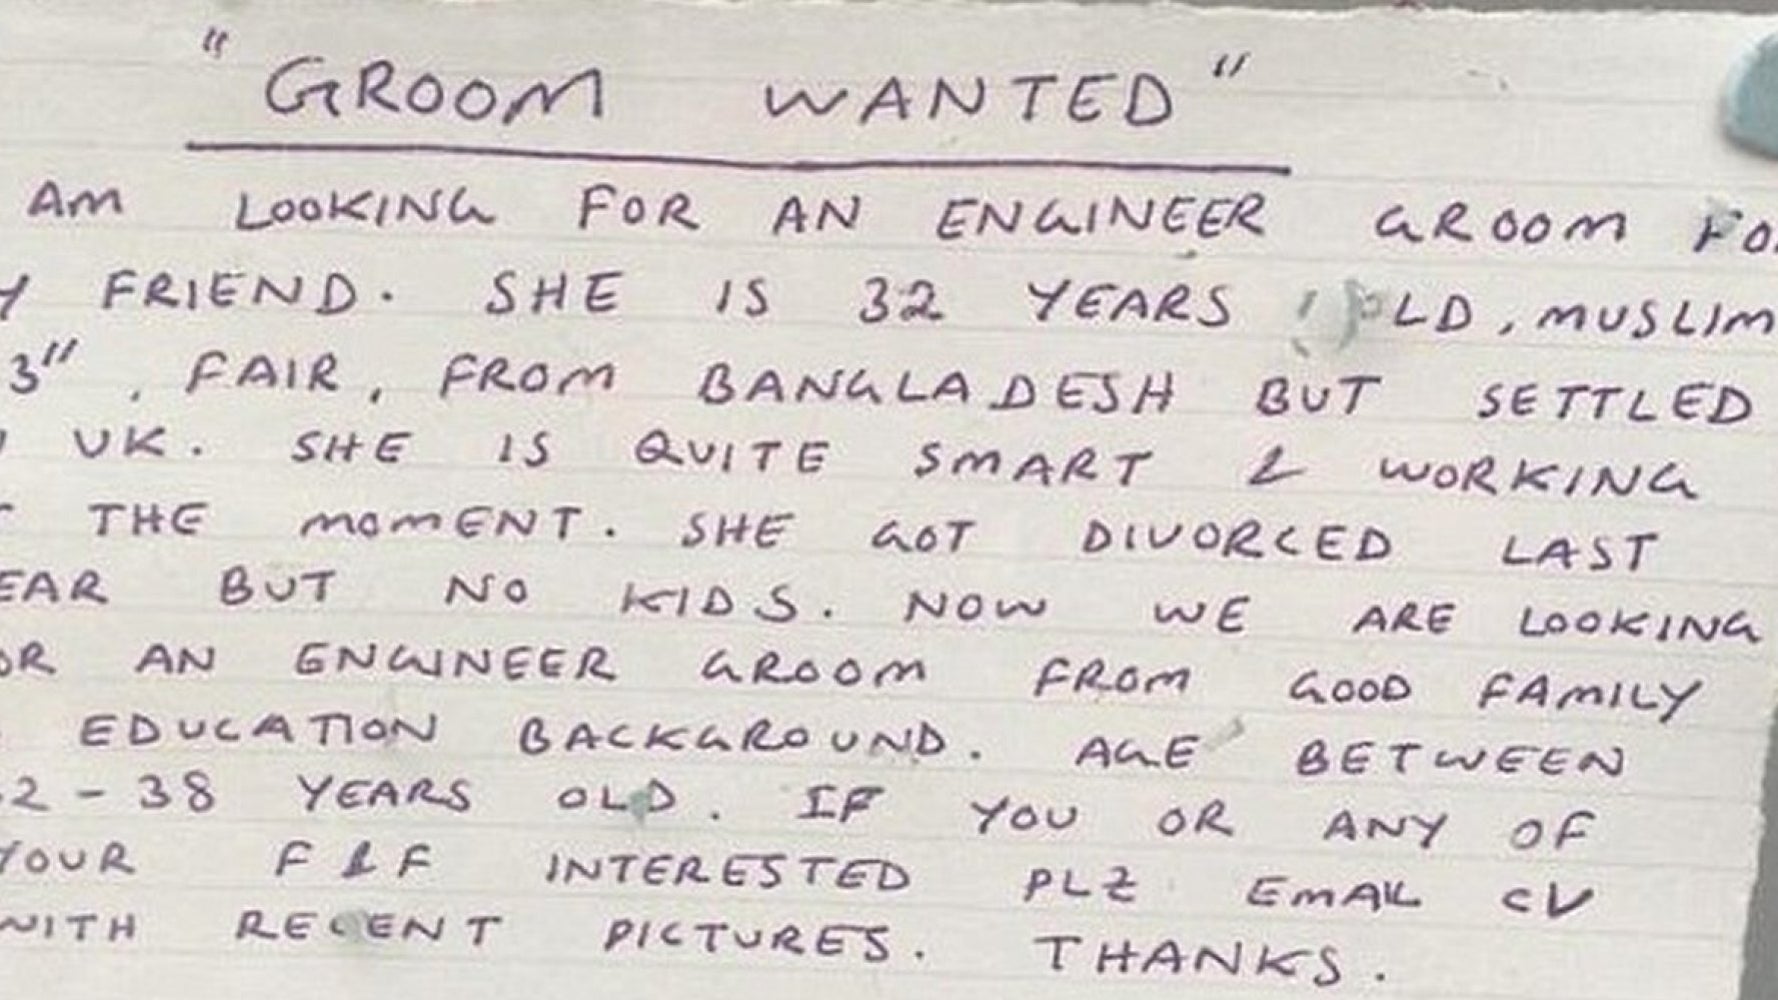 "GROOM WANTED"
AM LOOKING FOR AN ENGINEER GROOM FO
Y FRIEND. SHE IS 32 YEARS OLD, MUSLIM
3", FAIR, FROM BANGLADESH BUT SETTLED
UK. SHE IS QUITE SMART & WORKING
THE MOMENT. SHE GOT DIVORCED LAST
EAR BUT NO KIDS. NOW WE ARE LOOKING
OR AN ENGINEER GROOM FROM GOOD FAMILY
EDUCATION BACKGROUND. AGE BETWEEN
2-38 YEARS OLD. IF YOU OR ANY OF
YOUR F&F INTERESTED PLZ EMAIL CV
WITH RECENT PICTURES. THANKS.